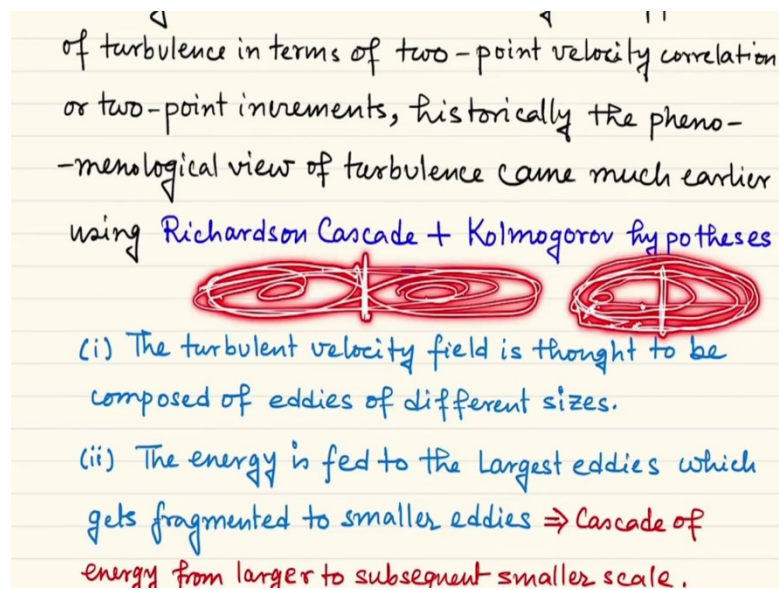 of turbulence in terms of two-point velocity correlation
or two-point increments, historically the pheno-
-menological view of turbulence came much earlier
using Richardson Cascade + Kolmogorov hypotheses
(i) The turbulent velocity field is thought to be
composed of eddies of different sizes.
(ii) The energy is fed to the Largest eddies which
gets fragmented to smaller eddies ⇒ Cascade of
energy from larger to subsequent smaller scale.